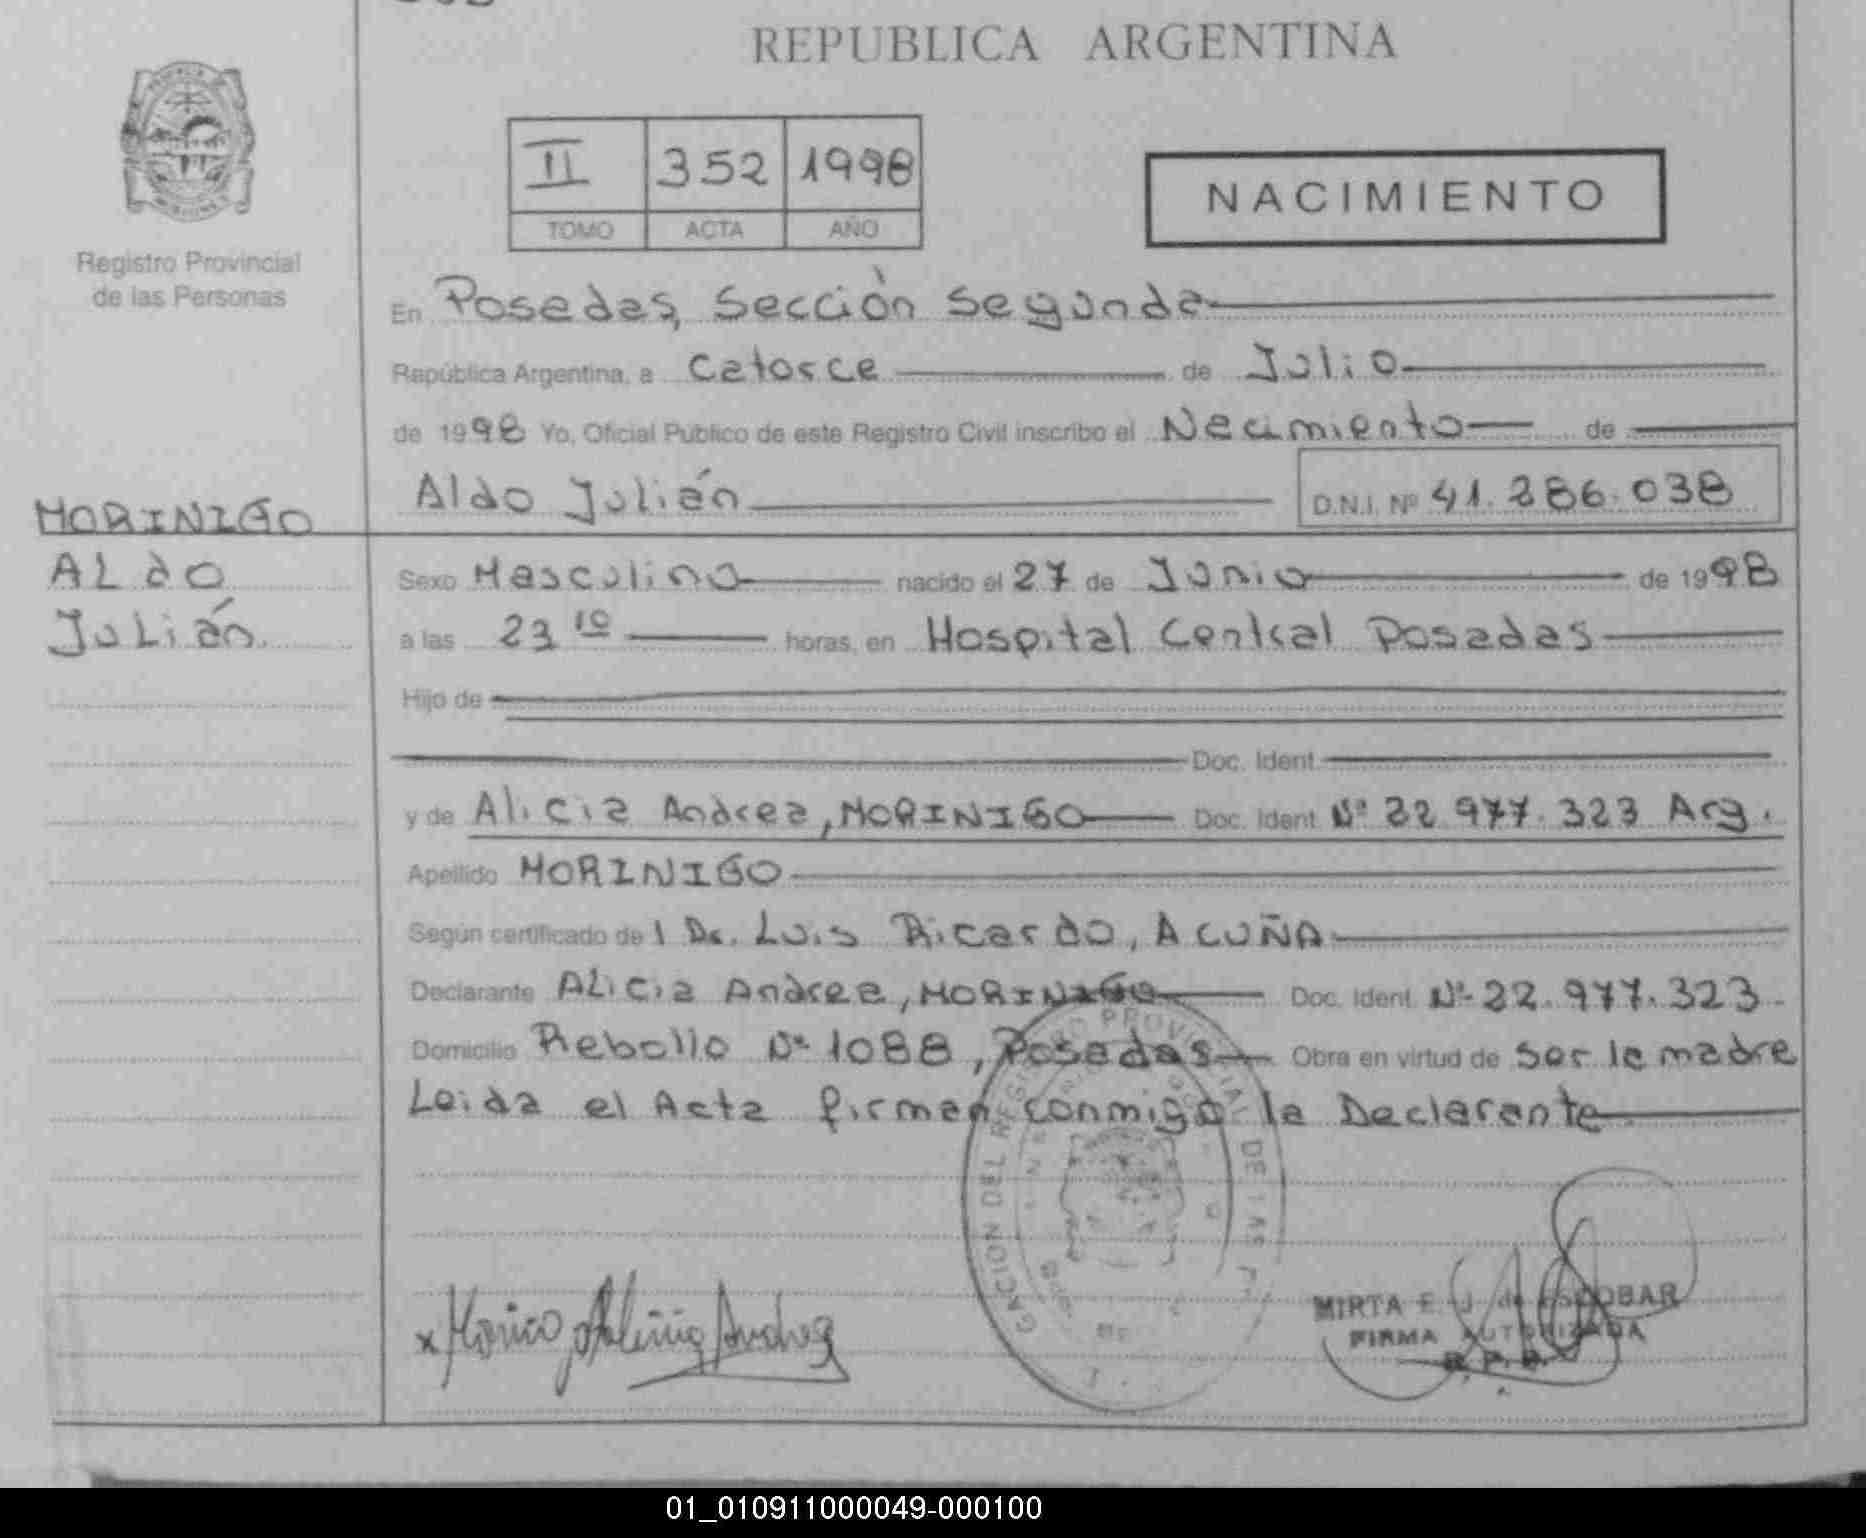 REPUBLICA ARGENTINA
II 352 1998
TOMO ACTA AÑO
NACIMIENTO
Registro Provincial
de las Personas
En Posadas, Sección Segunda
República Argentina, a Catorce de Julio
de 1998 Yo, Oficial Público de este Registro Civil inscribo el Nacimiento de
Aldo Julián D.N.I. Nº 41.286.038
MORINIGO
ALdO
JuLián
Sexo Masculino nacido el 27 de Junio de 1998
a las 23 10 horas, en Hospital Central Posadas
Hijo de
Doc. Ident.
y de Alicia Andrea, MORINIGO Doc. Ident. Nº 22.977.323 Arg.
Apellido MORINIGO
Según certificado de l Dr. Luis Ricardo, ACUÑA
Declarante ALicia Andrea, MORINIGO Doc. Ident. Nº 22.977.323
Domicilio Rebollo Nº 1088, Posadas Obra en virtud de ser la madre
Leida el Acta firman conmigo la Declarante
DEL REGISTRO PROVINCIAL DE LAS
MIRTA E. J. de ESCOBAR
FIRMA AUTORIZADA
R. P. P.
01_010911000049-000100